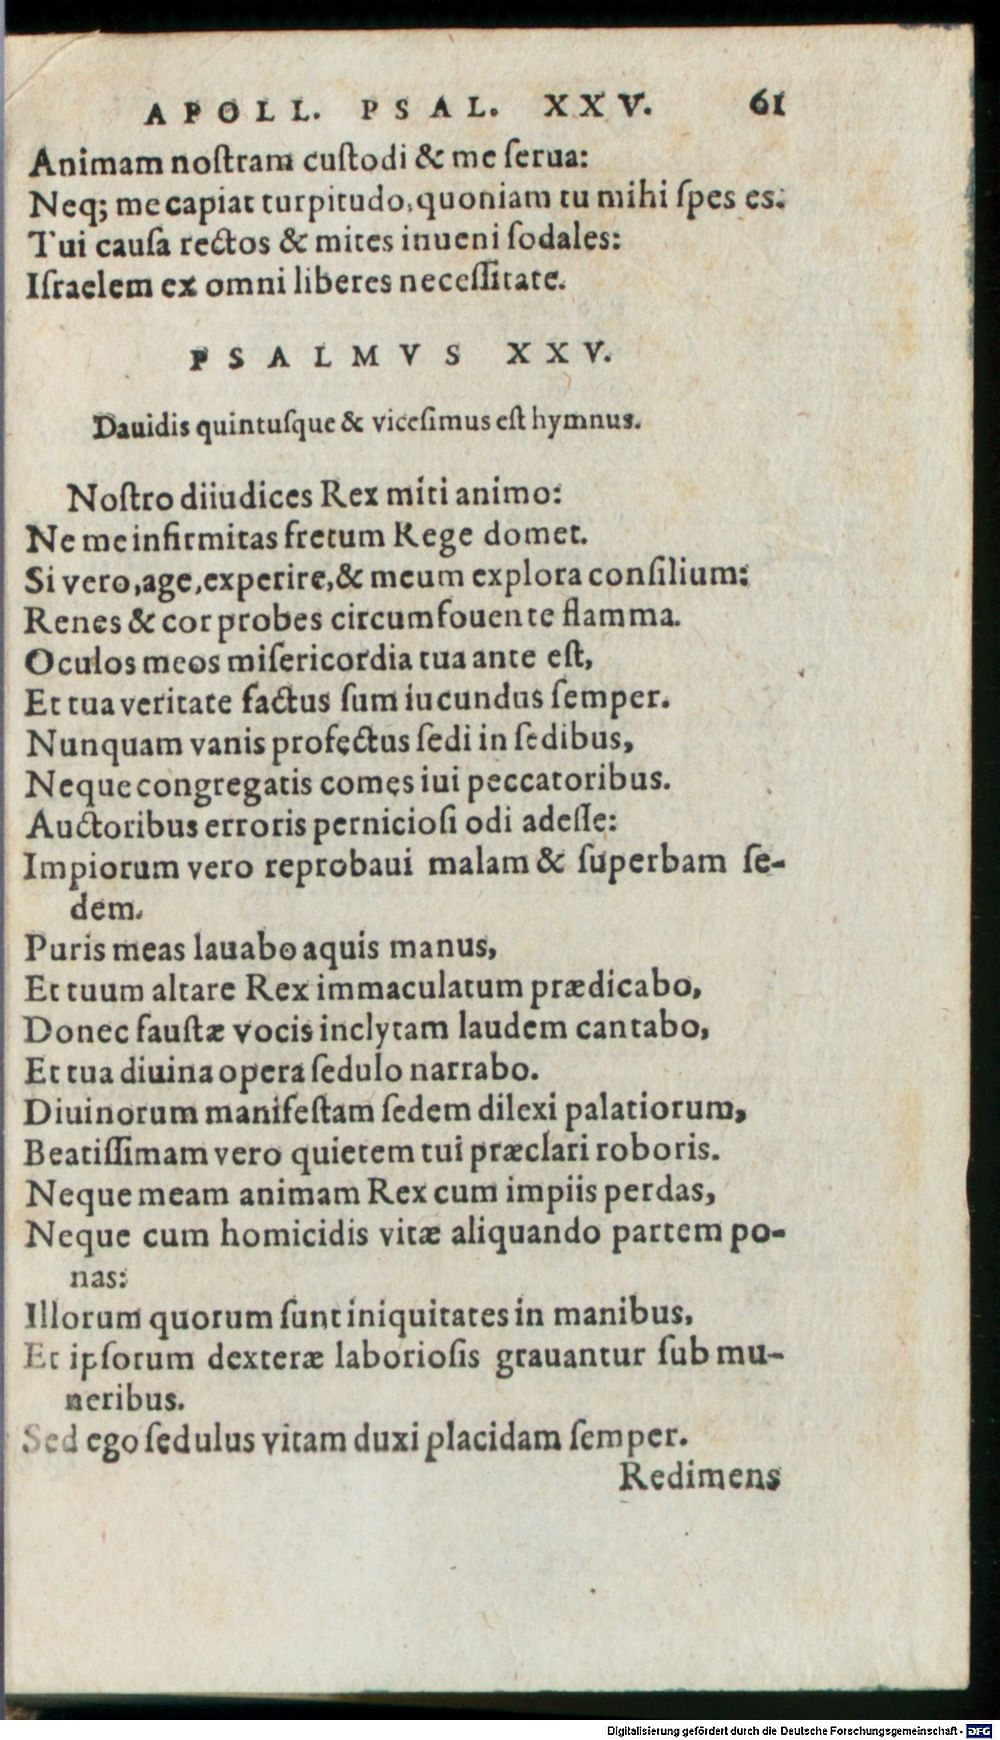 APOLL. PSAL. XXV. 61
Animam noſtram cuſtodi & me ſerua:
Neq; me capiat turpitudo, quoniam tu mihi ſpes es:
Tui cauſa rectos & mites inueni ſodales:
Iſraelem ex omni liberes neceſſitate.
PSALMVS XXV.
Dauidis quintuſque & viceſimus eſt hymnus.
Noſtro diiudices Rex miti animo:
Ne me infirmitas fretum Rege domet.
Si vero, age, experire, & meum explora conſilium:
Renes & cor probes circumfouente flamma.
Oculos meos miſericordia tua ante eſt,
Et tua veritate factus ſum iucundus ſemper.
Nunquam vanis profectus ſedi in ſedibus,
Neque congregatis comes iui peccatoribus.
Auctoribus erroris pernicioſi odi adeſſe:
Impiorum vero reprobaui malam & ſuperbam ſe-
dem.
Puris meas lauabo aquis manus,
Et tuum altare Rex immaculatum prædicabo,
Donec fauſtæ vocis inclytam laudem cantabo,
Et tua diuina opera ſedulo narrabo.
Diuinorum manifeſtam ſedem dilexi palatiorum,
Beatiſſimam vero quietem tui præclari roboris.
Neque meam animam Rex cum impiis perdas,
Neque cum homicidis vitæ aliquando partem po-
nas:
Illorum quorum ſunt iniquitates in manibus,
Et ipſorum dexteræ laborioſis grauantur ſub mu-
neribus.
Sed ego ſedulus vitam duxi placidam ſemper.
Redimens
Digitalisierung gefördert durch die Deutsche Forschungsgemeinschaft - DFG